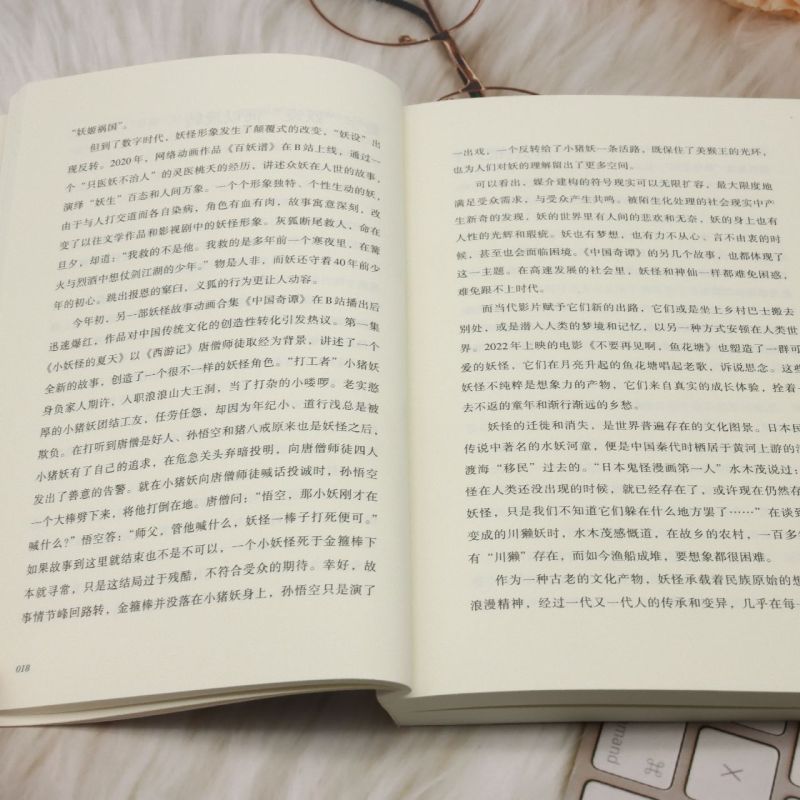 “妖姬祸国”。
但到了数字时代，妖怪形象发生了颠覆式的改变，“妖设”出
现反转。2020年，网络动画作品《百妖谱》在B站上线，通过一
个“只医妖不治人”的灵医桃夭的经历，讲述众妖在人世的故事，
演绎“妖生”百态和人间万象。一个个形象独特、个性生动的妖，
由于与人打交道而各自染病，角色有血有肉，故事寓意深刻，改
变了以往文学作品和影视剧中的妖怪形象。灰狐断尾救人，命在
旦夕，却道：“我救的不是他。我救的是多年前一个寒夜里，在篝
火与烈酒中想仗剑江湖的少年。”物是人非，而妖还守着40年前少
年的初心。跳出报恩的窠臼，义狐的行为更让人动容。
今年初，另一部妖怪故事动画合集《中国奇谭》在B站播出后
迅速爆红，作品对中国传统文化的创造性转化引发热议。第一集
《小妖怪的夏天》以《西游记》唐僧师徒取经为背景，讲述了一个
全新的故事，创造了一个很不一样的妖怪角色。“打工者”小猪妖
身负家人期许，入职浪浪山大王洞，当了打杂的小喽啰。老实憨
厚的小猪妖团结工友，任劳任怨，却因为年纪小、道行浅总是被
欺负。在打听到唐僧是好人、孙悟空和猪八戒原来也是妖怪之后，
小猪妖有了自己的追求，在危急关头弃暗投明，向唐僧师徒四人
发出了善意的告警。就在小猪妖向唐僧师徒喊话投诚时，孙悟空
一个大棒劈下来，将他打倒在地。唐僧问：“悟空，那小妖刚才在
喊什么？”悟空答：“师父，管他喊什么，妖怪一棒子打死便可。”
如果故事到这里就结束也不是不可以，一个小妖死于金箍棒下
本就寻常，只是这结局过于残酷，不符合受众的期待。幸好，故
事情节峰回路转，金箍棒并没落在小猪妖身上，孙悟空只是演了
018
一出戏，一个反转给了小猪妖一条活路，既保住了美猴王的光环，
也为人们对妖的理解留出了更多空间。
可以看出，媒介建构的符号现实可以无限扩容，最大限度地
满足受众需求，与受众产生共鸣。被陌生化处理的社会现实中产
生新奇的发现，妖的世界里有人间的悲欢和无奈，妖的身上也有
人性的光辉和瑕疵。妖也有梦想，也有力不从心、言不由衷的时
候，甚至也会面临困境。《中国奇谭》的另几个故事，也都体现了
这一主题。在高速发展的社会里，妖怪和神仙一样都难免困惑，
难免跟不上时代。
而当代影片赋予它们新的出路，它们或是坐上乡村巴士搬去
别处，或是潜入人类的梦境和记忆，以另一种方式安顿在人类世
界。2022年上映的电影《不要再见啊，鱼花塘》也塑造了一群可
爱的妖怪，它们在月亮升起的鱼花塘唱起老歌，诉说思念。这些
妖怪不纯粹是想象力的产物，它们来自真实的成长体验，拴着一
去不返的童年和渐行渐远的乡愁。
妖怪的迁徙和消失，是世界普遍存在的文化图景。日本民
传说中著名的水妖河童，便是中国秦代时栖居于黄河上游的
渡海“移民”过去的。“日本鬼怪漫画第一人”水木茂说过：
怪在人类还没出现的时候，就已经存在了，或许现在仍然存
妖怪，只是我们不知道它们躲在什么地方罢了……”在谈到
变成的川獭妖时，水木茂感慨道，在故乡的农村，一百多
有“川獭”存在，而如今渔船成堆，要想象都很困难。
作为一种古老的文化产物，妖怪承载着民族原始的想
浪漫精神，经过一代又一代人的传承和变异，几乎在每一
command
⌘
X